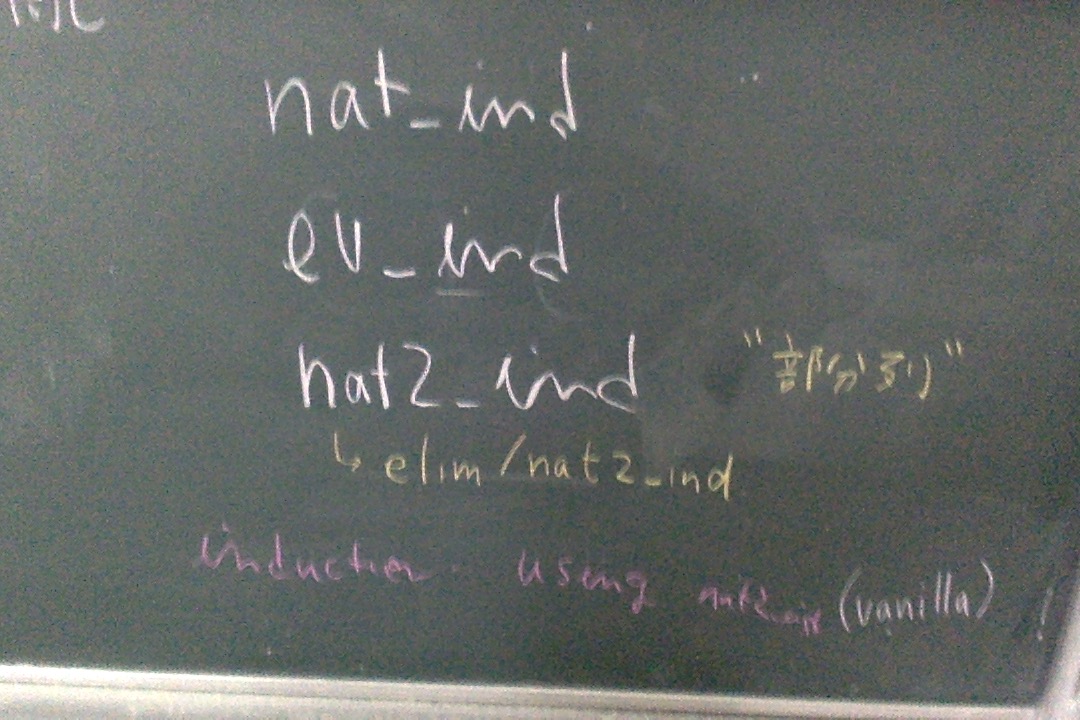 nat_ind
ev_ind
nat2_ind "部分列"
↳ elim/nat2_ind
induction using nat2_ind (vanilla)